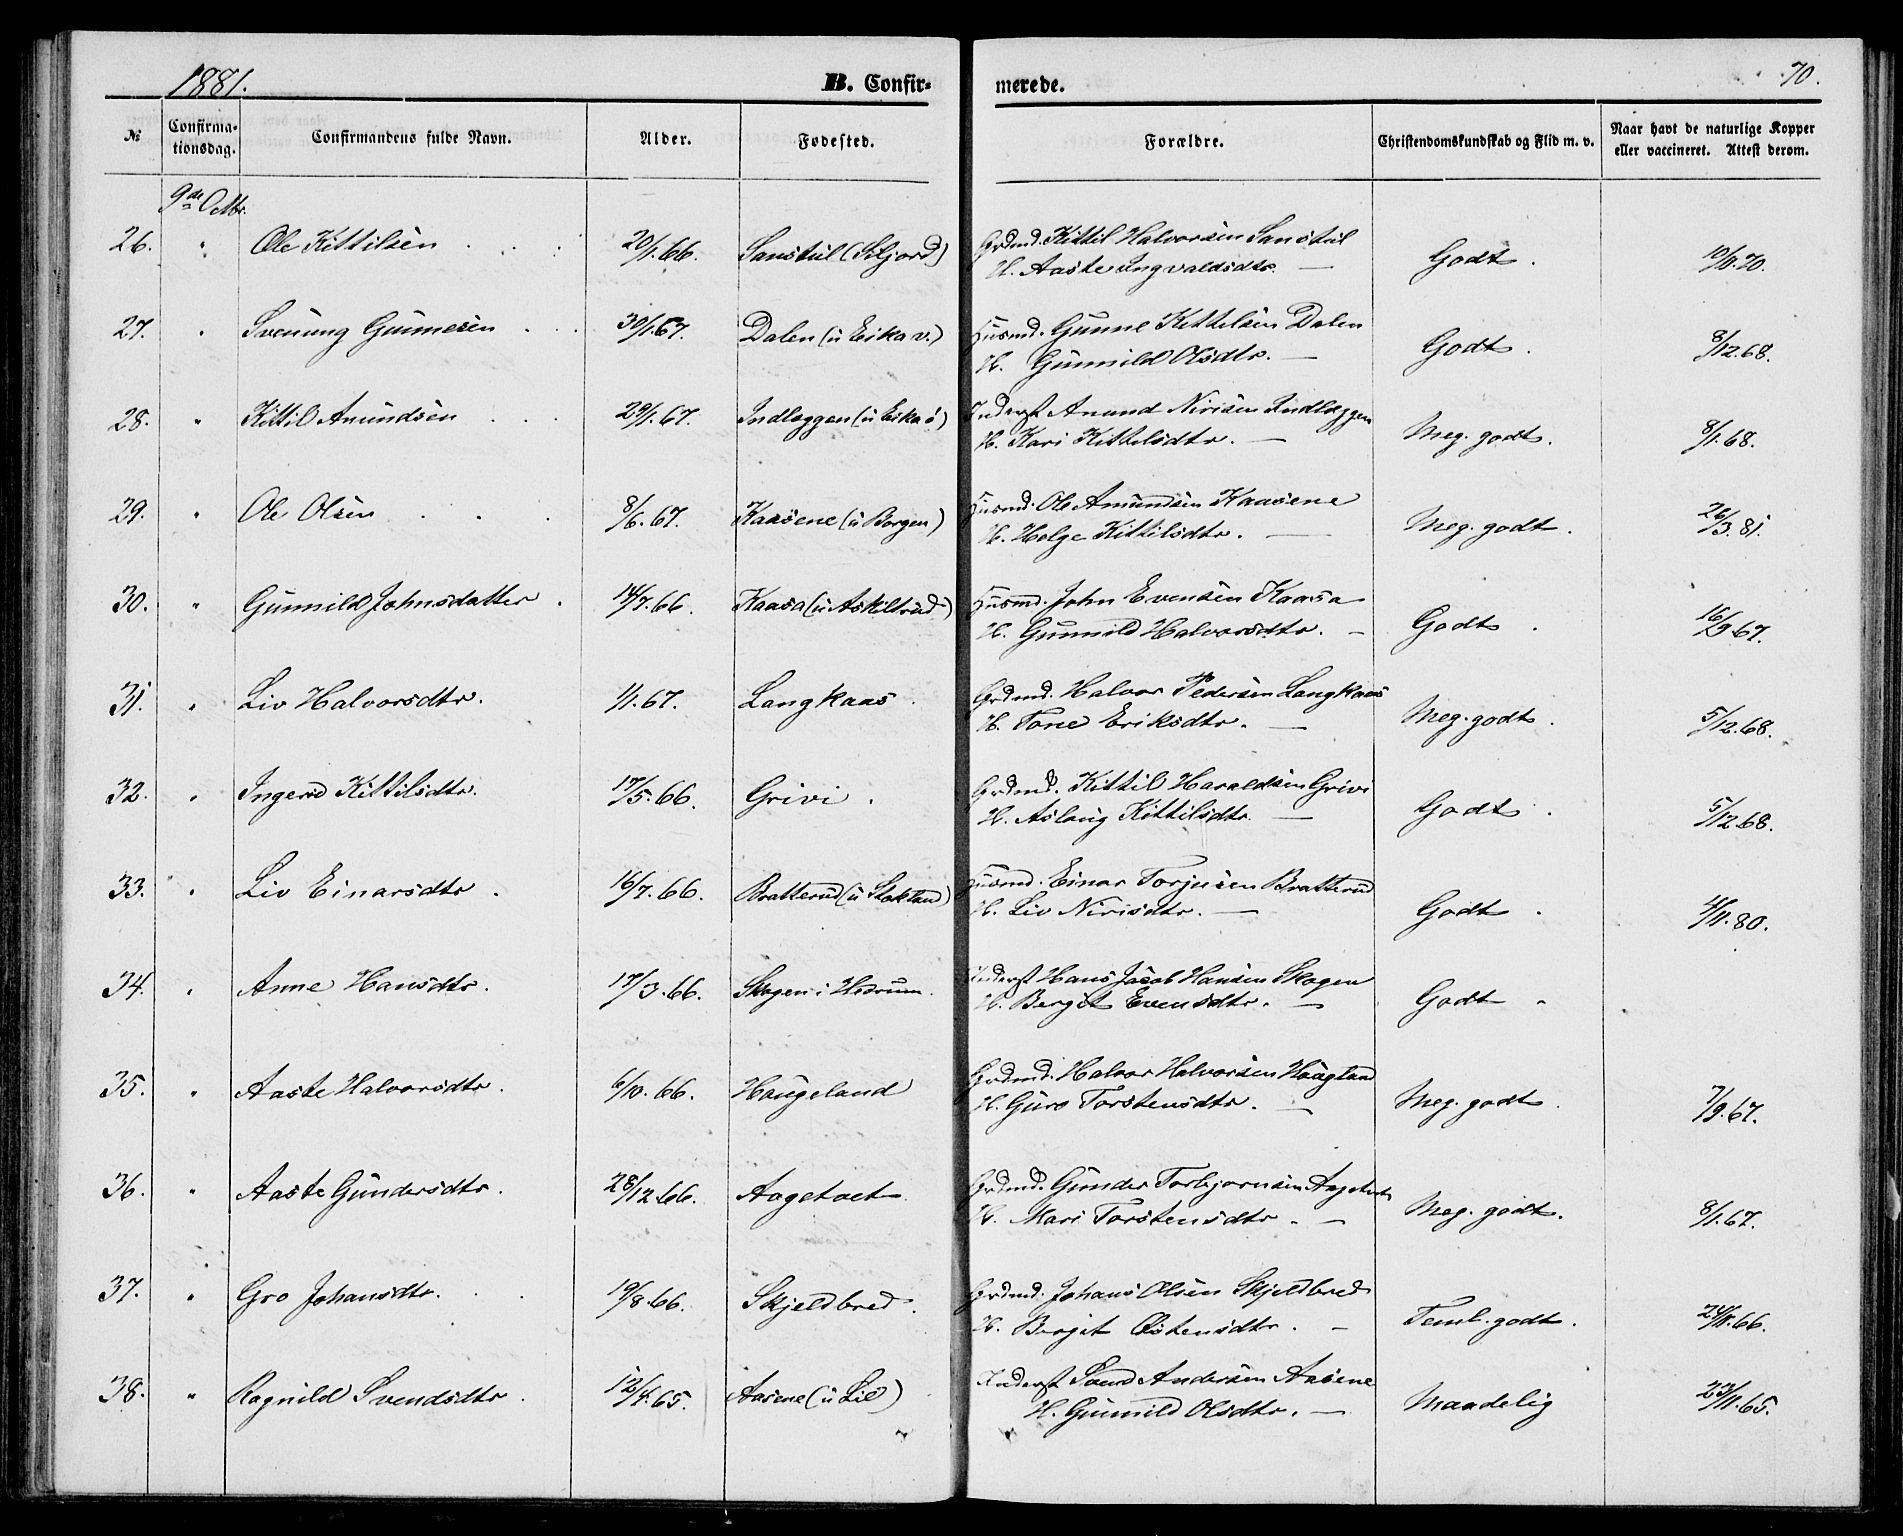 1881.
B. Confirmerede.
70.
№ Confirmationsdag. Confirmandens fulde Navn. Alder. Fødested. Forældre. Christendomskundskab og Flid m. v. Naar havt de naturlige Kopper eller vaccineret. Attest derom.
9de Octbr.
26. " Ole Kittilsen 20/1.66. Sanstul (Siljord) Grdmd. Kittil Halvorsen Sanstul Godt. 10/10.70.
H. Aaste Ingvaldsdtr. —
27. " Svenung Gunnesen 30/1.67. Dalen (u Eika v.) Husmd. Gunne Kittilsen Dalen Godt. 8/12.68.
H. Gunnild Olsdtr. —
28. " Kittil Amundsen 29/1.67. Indleggen (u Eika ø) Inderst Anund Nirisen Indlæggen Meg. godt. 8/1.68.
H. Kari Kittilsdtr. —
29. " Ole Olsen 8/6.67. Kaasene (u Borgen) Husmd. Ole Amundsen Kaasene Meg. godt. 26/3.81.
H. Helge Kittilsdtr. —
30. " Gunnild Johnsdatter 14/7.66. Kaasa (u Askiltrud) Husmd. John Evensen Kaasa Godt. 16/9.67.
H. Gunnild Halvorsdtr. —
31. " Liv Halvorsdtr. 1/1.67. Langkaas Grdmd. Halvor Pedersen Langkaas Meg. godt. 5/12.68.
H. Tone Eriksdtr. —
32. " Ingerid Kittilsdtr. 17/5.66. Grivi. Grdmd. Kittil Haraldsen Grivi Godt. 5/12.68.
H. Aslaug Kittilsdtr. —
33. " Liv Einarsdtr. 16/7.66. Bratterud (u Stoktan) Husmd. Einar Torjusen Bratterud Godt. 4/11.80.
H. Liv Nirisdtr. —
34. " Anne Hansdtr. 17/3.66. Skogen i Hedrum. Inderst Hans Jacob Hansen Skogen Godt
H. Bergit Evensdtr. —
35. " Aaste Halvorsdtr. 6/10.66. Haugeland Grdmd. Halvor Halvorsen Haugland Meg. godt. 7/9.67.
H. Guro Torstensdtr. —
36. " Aaste Gundersdtr. 28/12.66. Aagetvet Grdmd. Gunder Torbjørnsen Aagetvet Meg. godt. 8/1.67.
H. Mari Torstensdtr. —
37. " Gro Johansdtr. 19/8.66. Skjeldbred. Grdmd. Johans Olsen Skjeldbred Teml. godt. 24/11.66.
H. Bergit Østensdtr. —
38. " Ragnild Svendsdtr. 12/4.65. Aasene (u Lie) Inderst Svend Andersen Aasene Maadelig 23/11.65.
H. Gunnild Olsdtr. —